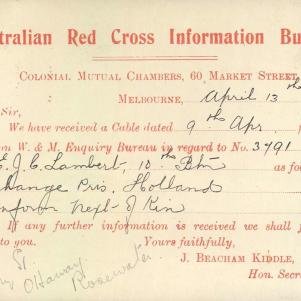 tralian Red Cross Information Bu
Colonial Mutual Chambers, 60 Market Street,
Melbourne, April 13th
Sir,
We have received a Cable dated 9th Apr.
on W. & M. Enquiry Bureau in regard to No. 3491
E. J. C. Lambert, 10th Btn as fo
change Pris. Holland
nform next of Kin
If any further information is received we shall f
to you. Yours faithfully,
J. Beacham Kiddle,
Hon. Secr
St
Ottaway
Rosewater